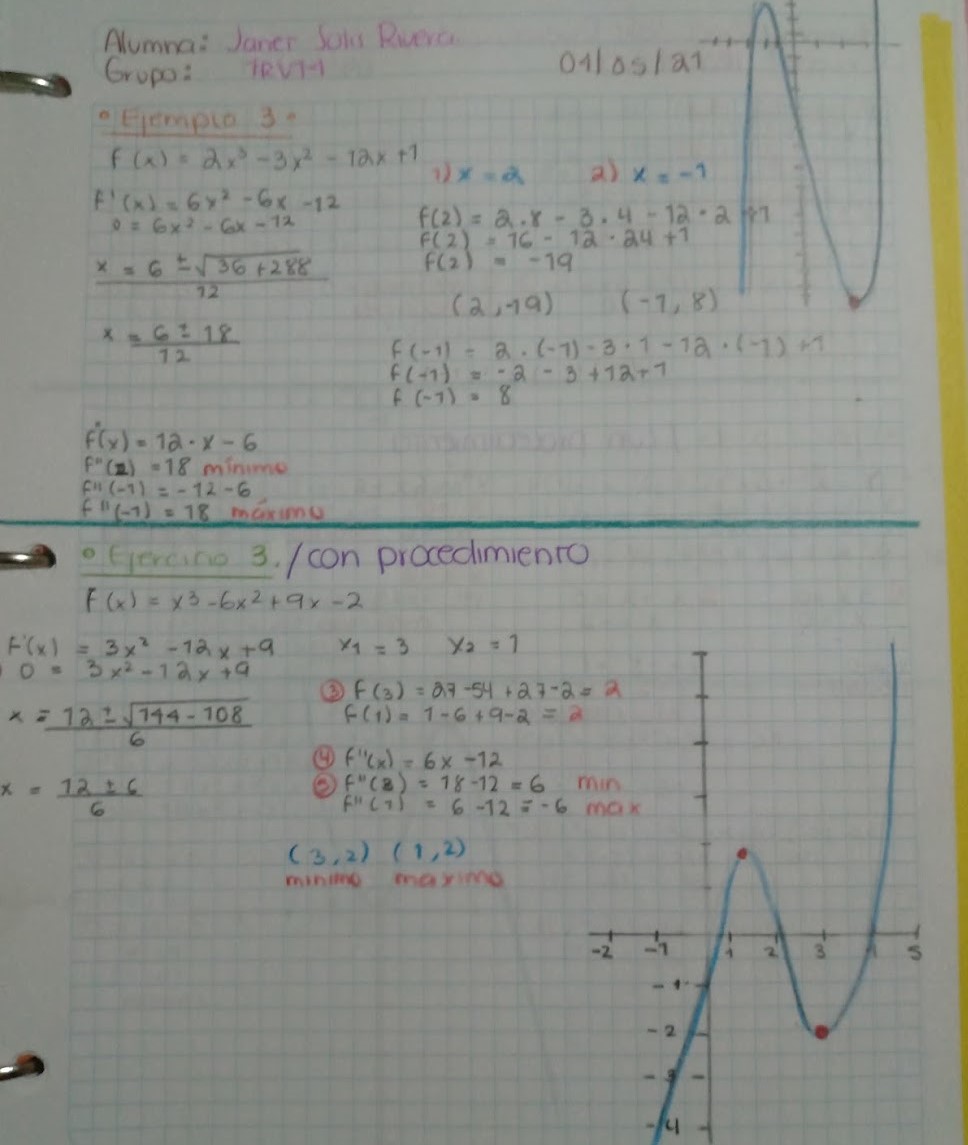 Alumna: Janet Solis Rivera
Grupo: 1RV11
04/05/21
• Ejemplo 3 •
f(x) = 2x³ - 3x² - 12x + 1
f'(x) = 6x² - 6x - 12
0 = 6x² - 6x - 12
x = 6 ± √36 + 288
12
x = 6 ± 18
12
1) x = 2 2) x = -1
f(2) = 2 · 8 - 3 · 4 - 12 · 2 + 1
f(2) = 16 - 12 - 24 + 1
f(2) = -19
(2, -19) (-1, 8)
f(-1) = 2 · (-1) - 3 · 1 - 12 · (-1) + 1
f(-1) = -2 - 3 + 12 + 1
f(-1) = 8
f''(x) = 12 · x - 6
f''(2) = 18 mínimo
f''(-1) = -12 - 6
f''(-1) = 18 máximo
• Ejercicio 3. / con procedimiento
f(x) = x3 - 6x2 + 9x - 2
f'(x) = 3x² - 12x + 9
0 = 3x² - 12x + 9
x = 12 ± √144 - 108
6
x = 12 ± 6
6
x1 = 3 x2 = 1
③ f(3) = 27 - 54 + 27 - 2 = 2
f(1) = 1 - 6 + 9 - 2 = 2
④ f''(x) = 6x - 12
⑤ f''(3) = 18 - 12 = 6 min
f''(1) = 6 - 12 = -6 max
(3, 2) (1, 2)
minimo maximo
-2 -1 1 2 3 5
-1
-2
-3
-4